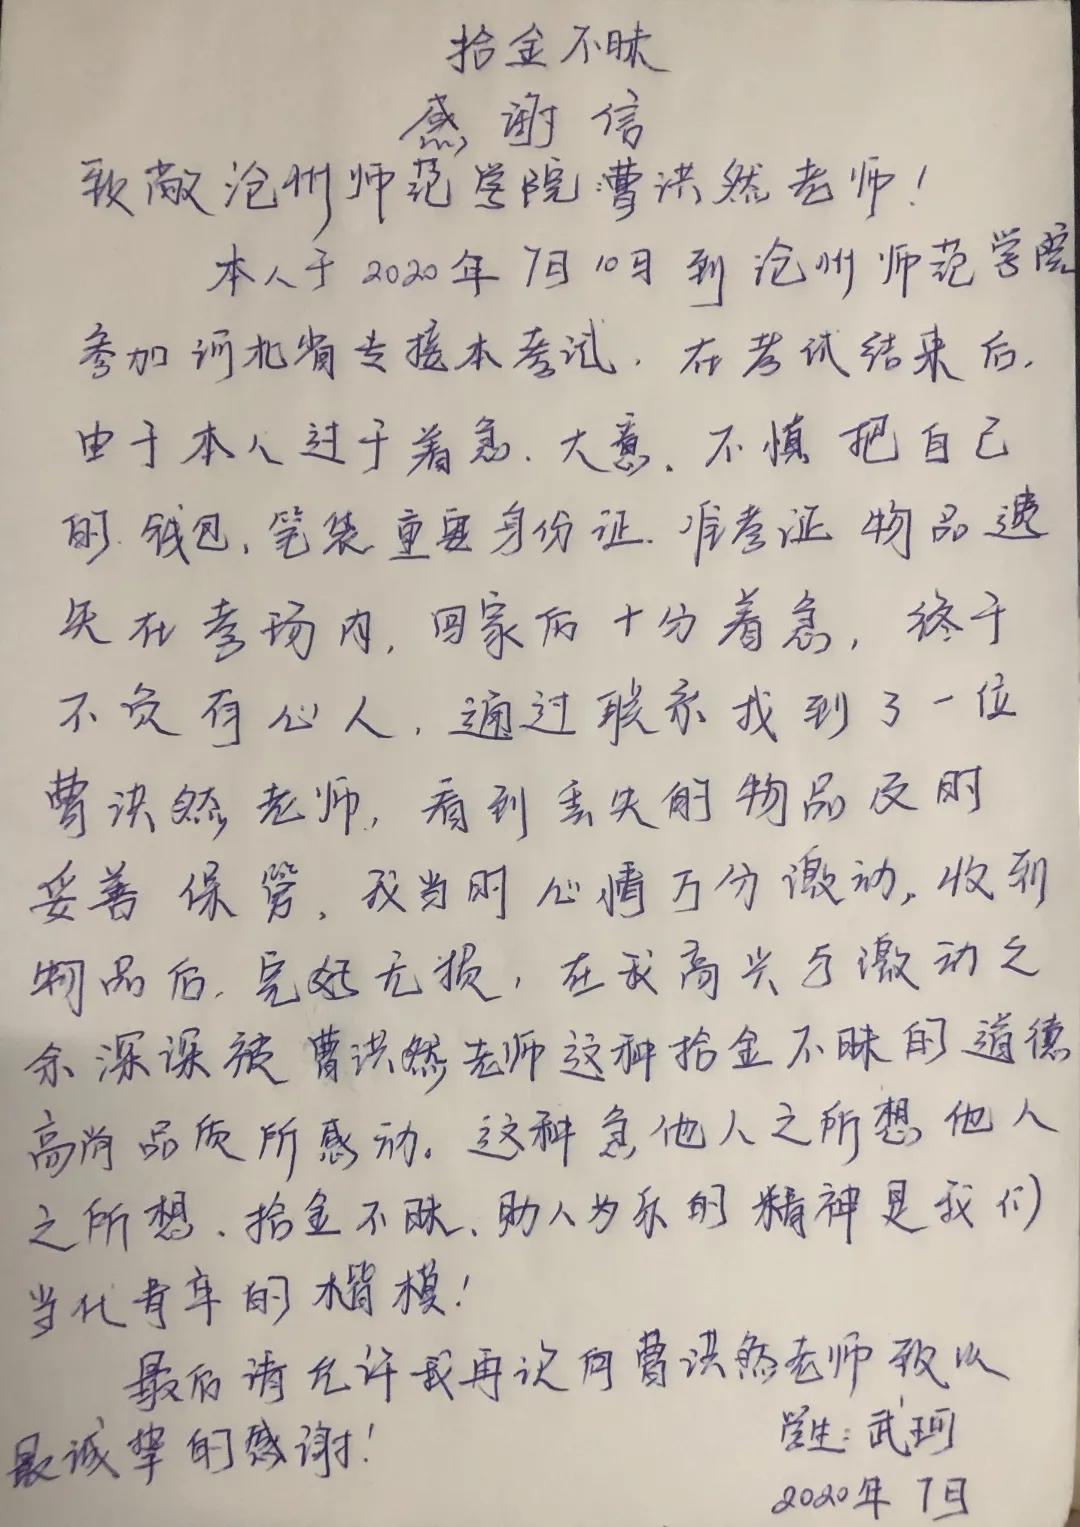 拾金不昧
感谢信
致敬沧州师范学院曹洪然老师！
本人于2020年7月10日到沧州师范学院
参加河北省专接本考试，在考试结束后，
由于本人过于着急、大意、不慎把自己
的钱包、笔袋重要身份证、准考证物品遗
失在考场内，回家后十分着急，终于
不负有心人，通过联系找到了一位
曹洪然老师，看到丢失的物品及时
妥善保管，我当时心情万分激动，收到
物品后，完好无损，在我高兴与激动之
余深深被曹洪然老师这种拾金不昧的道德
高尚品质所感动。这种急他人之所想他人
之所想、拾金不昧、助人为乐的精神是我们
当代青年的楷模！
最后请允许我再次向曹洪然老师致以
最诚挚的感谢！
学生：武珂
2020年7月